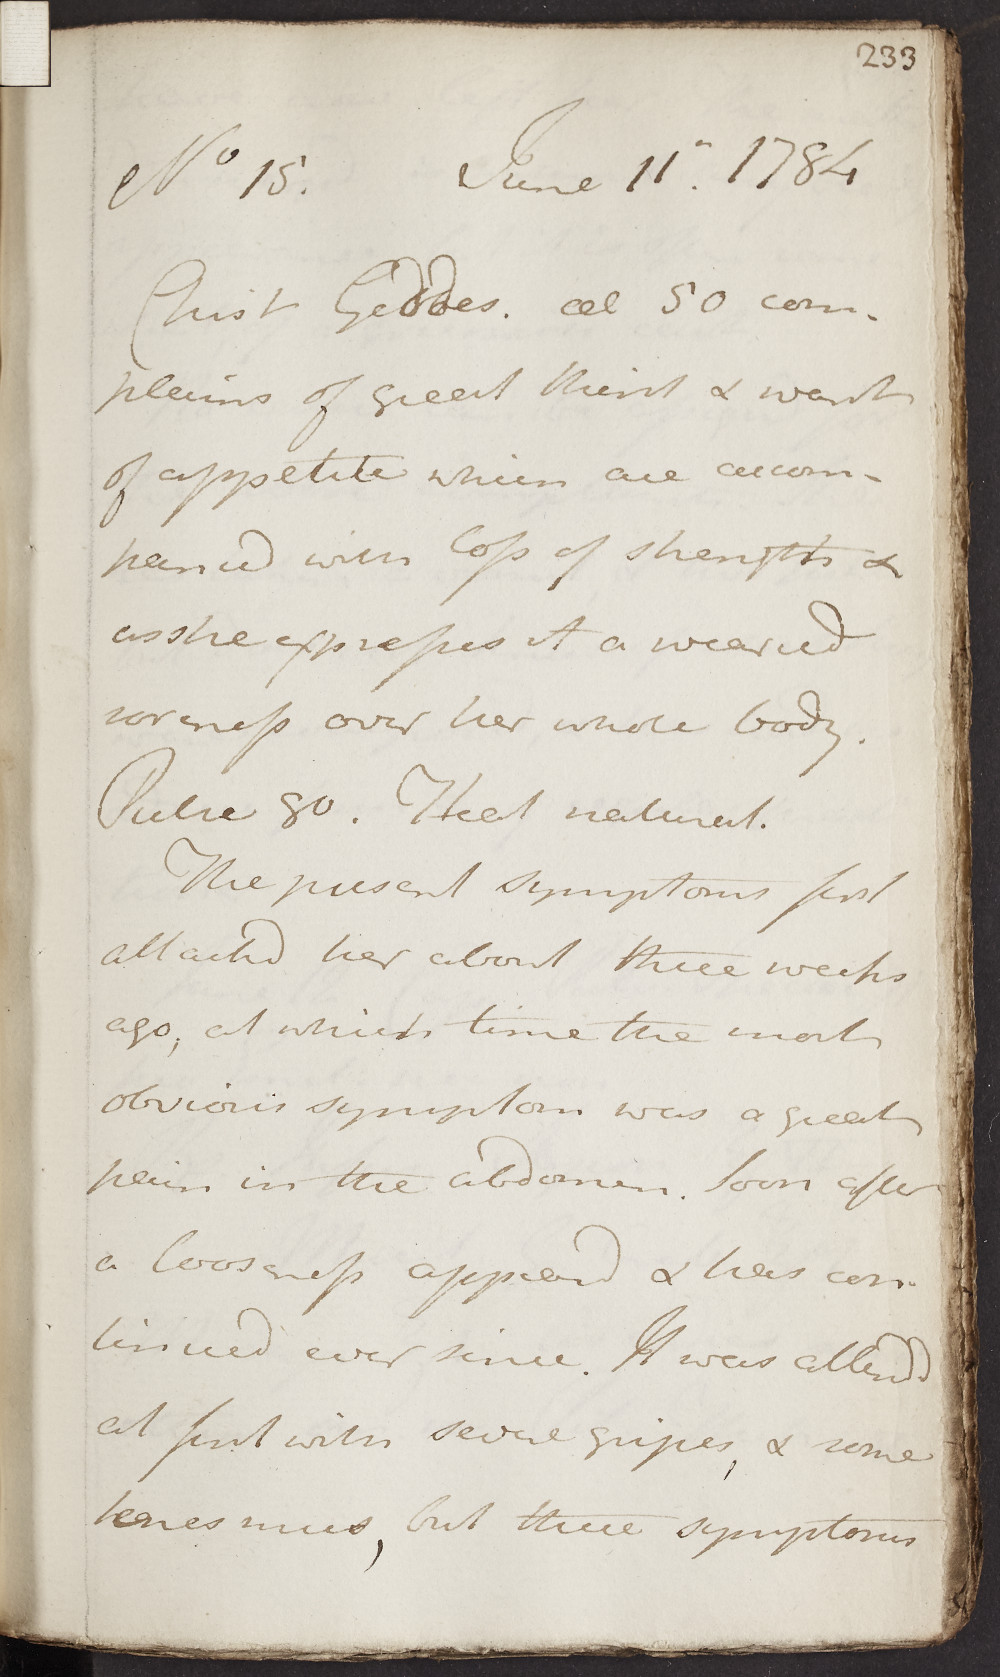 233
No 15. June 11th. 1784
Christ Geddes. æt 50 com-
plains of great thirst & want
of appetite which are accom-
panied with loss of strength &
as she expresses it a wearied
soreness over her whole body.
Pulse 80. Heat natural.
The present symptoms first
attackd her about three weeks
ago, at which time the most
obvious symptom was a great
pain in the abdomen. Soon after
a looseness appeard & has con-
tinued ever since. It was attendd
at first with severe gripes, & some
tenesmus, but these symptoms